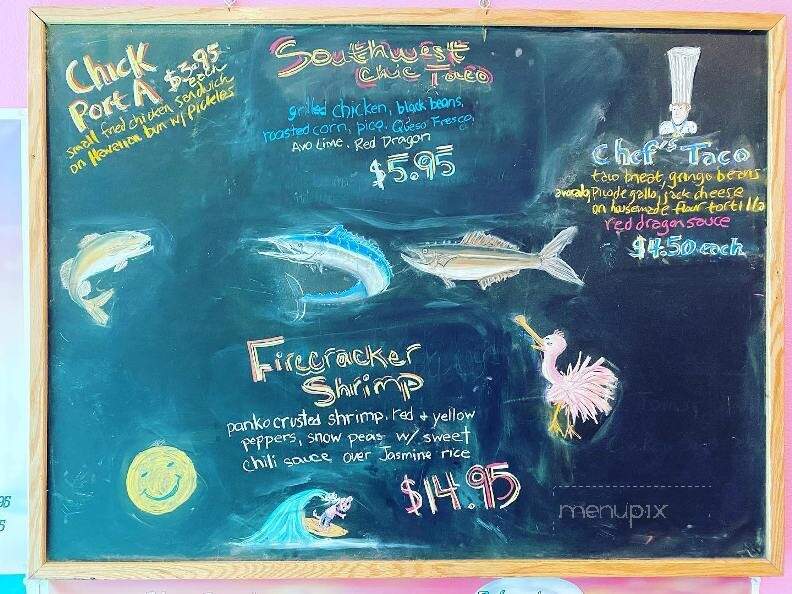 Chick
Port A $3.95
each
small fried chicken sandwich
on Hawaiian bun w/ pickles
Southwest
Chic Taco
grilled chicken, black beans,
roasted corn, pico, Queso Fresco,
Avo Lime, Red Dragon
$5.95
Chef's Taco
taco meat, gringo beans
avocado, Pico de gallo, jack cheese
on housemade flour tortilla
red dragon sauce
$4.50 each
Firecracker
Shrimp
panko crusted shrimp, red + yellow
peppers, snow peas w/ sweet
chili sauce over Jasmine rice
$14.95
menupix